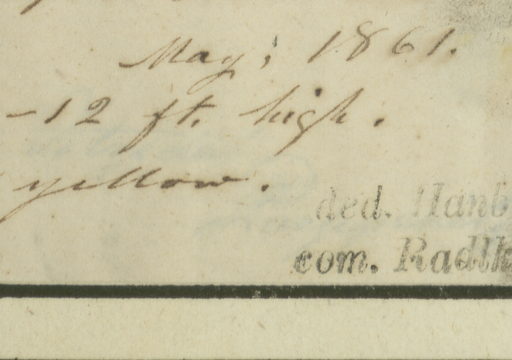 May; 1861.
-12 ft. high.
yellow.
ded. Hanb
com. Radlk